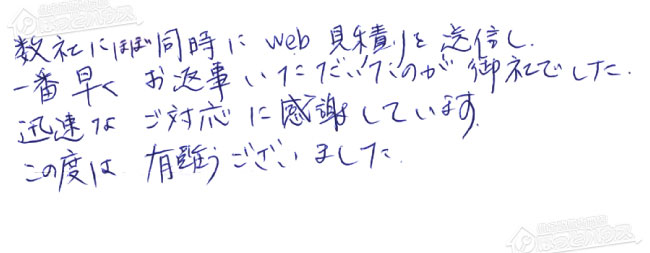 数社にほぼ同時に web 見積りを送信し、
一番早く お返事いただいたのが 御社でした。
迅速な ご対応に感謝しています。
この度は 有難うございました。